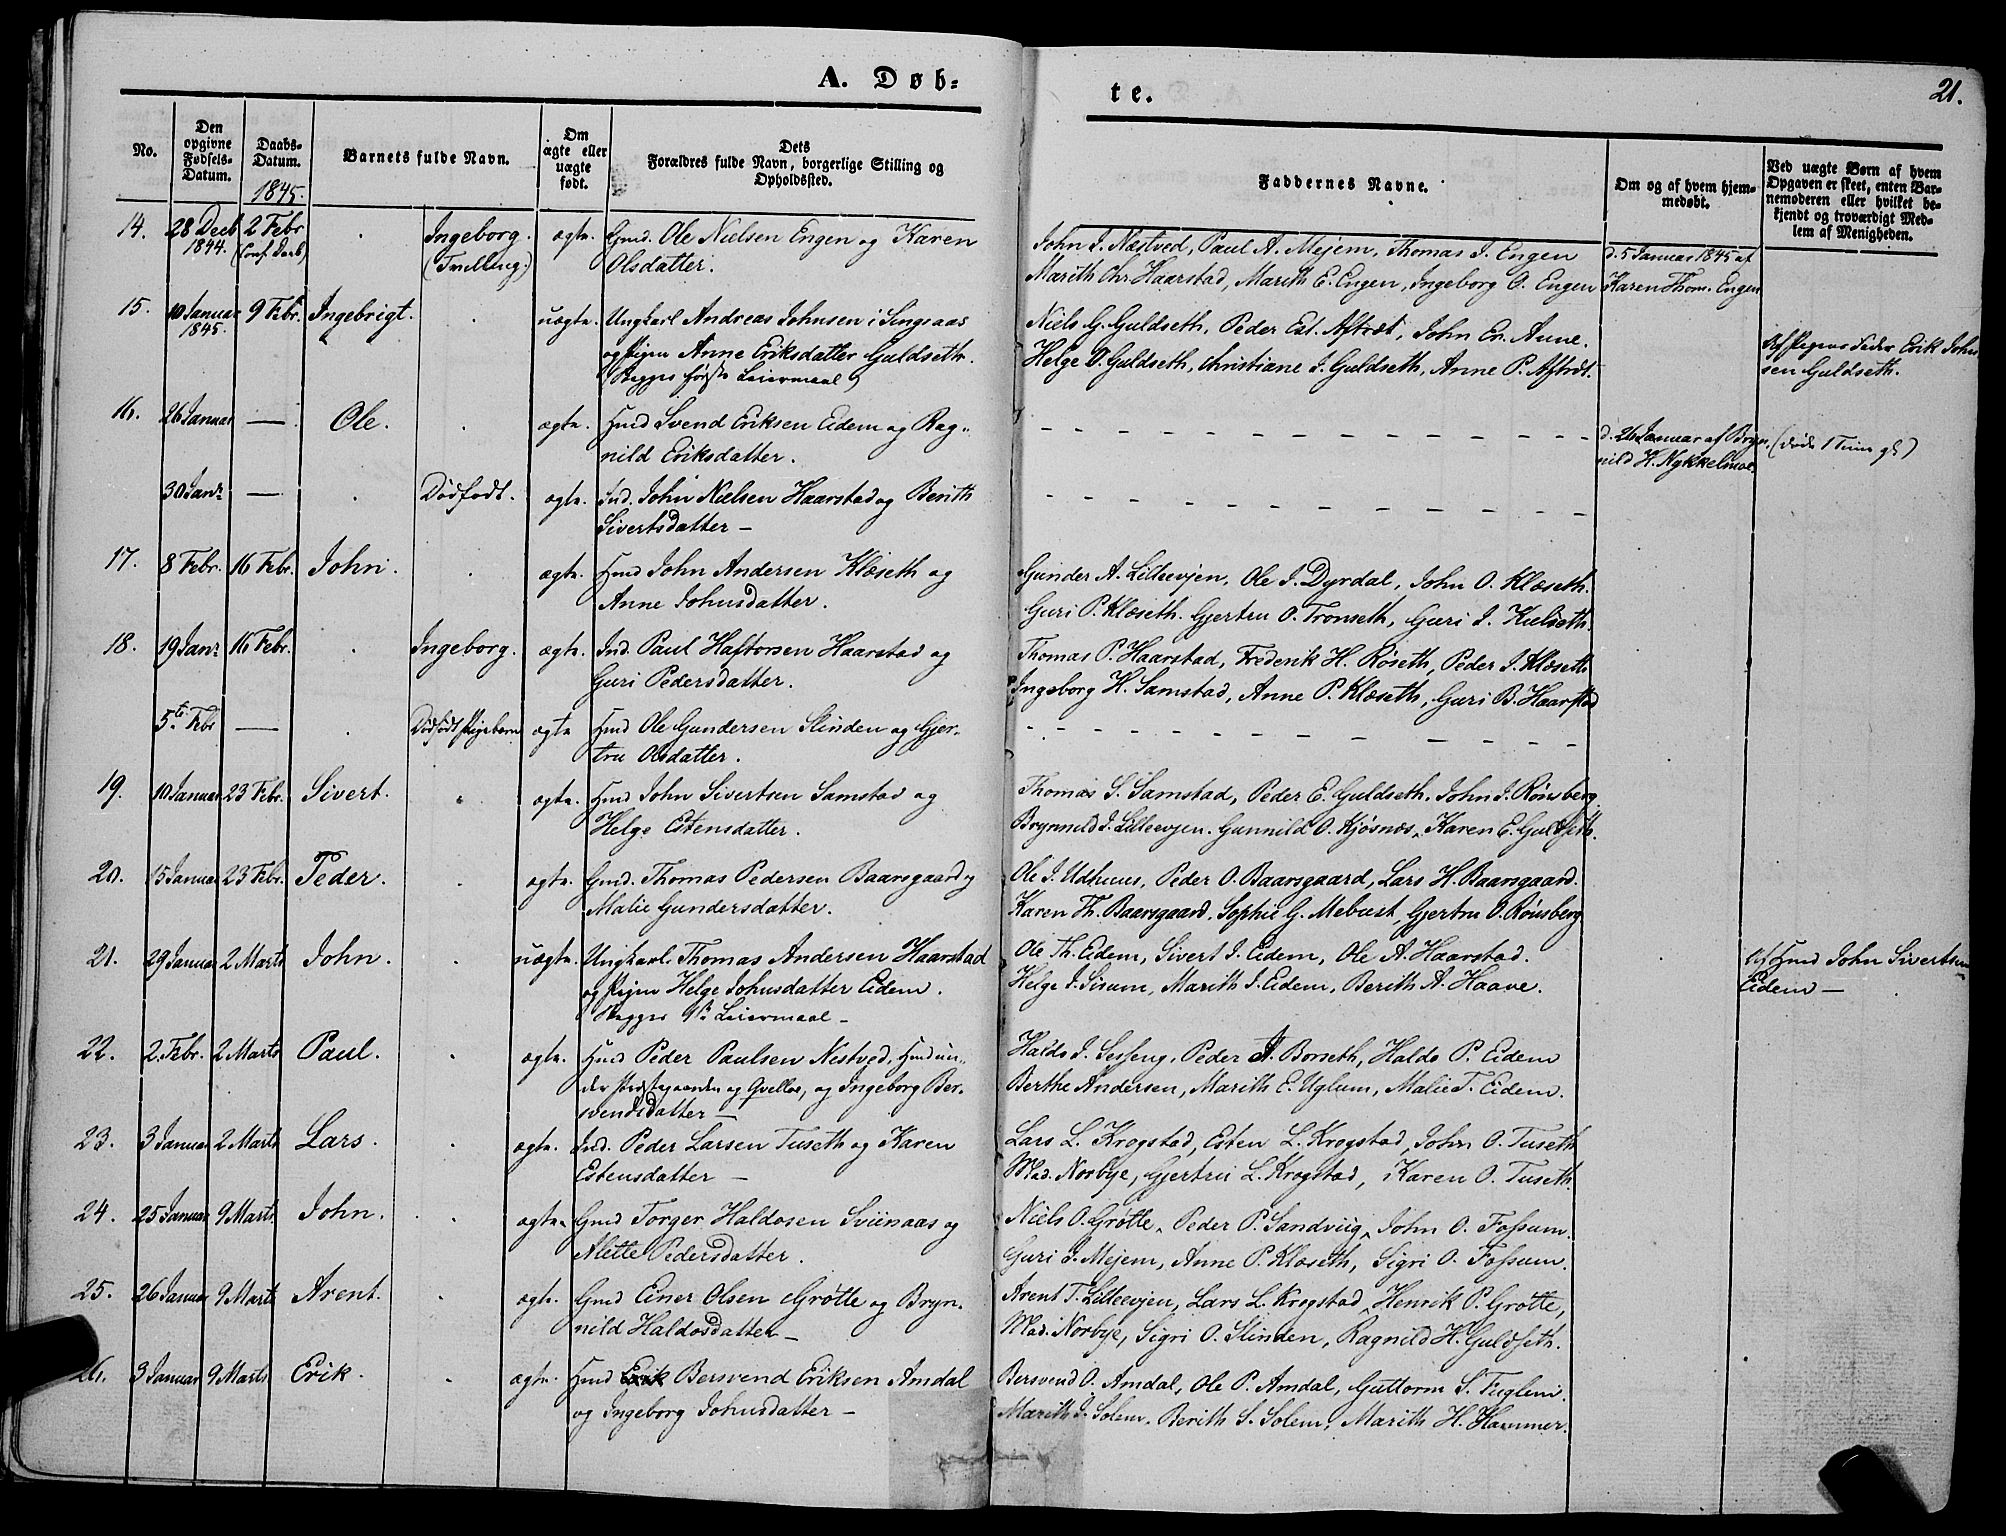 A. Døb=
te.
21.
No.
Den opgivne Fødsels-Datum.
Daabs-Datum.
1845.
Barnets fulde Navn.
Om ægte eller uægte født.
Dets Forældres fulde Navn, borgerlige Stilling og Opholdssted.
Faddernes Navne.
Om og af hvem hjemmedøbt.
Ved uægte Børn af hvem Opgaven er skeet, enten Barnemoderen eller hvilket bekjendt og troværdigt Medlem af Menigheden.
14. 28 Decb 2 Febr . Ingeborg. ægte. Gmd. Ole Nielsen Engen og Karen
1844. (conf. Daab) (Tvilling.) Olsdatter.
John J. Næstved, Paul A. Mejem, Thomas J. Engen d. 5 Januar 1845 af
Marith Chr. Haarstad, Marith E. Engen, Ingeborg O. Engen Karen Thom. Engen
15. 10 Januar 9 Febr. Ingebrigt. . uægte. Ungkarl Andreas Johnsen i Singsaas
1845. og Pigen Anne Eriksdatter Guldseth.
Begges første Leiermaal
Niels G. Guldseth, Peder Est. Aftret, John Er. Aune.
Helge O. Guldseth, Christiane J. Guldseth, Anne P. Aftret.
Af Pigens Fader Erik John
sen Guldseth.
16. 26 Januar — Ole. . ægte. Hmd Svend Eriksen Eidem og Rag-
nild Eriksdatter.
d. 26 Januar af Bryn
nild H. Nykkelmoe. (døde 1 Time gl)
30 Janr — . Dødfødt. ægte. Ind. John Nielsen Haarstad og Berith
Sivertsdatter —
17. 8 Febr. 16 Febr. John. . ægte. Hmd John Andersen Klæseth og
Anne Johnsdatter.
Gunder A. Lilleevjen, Ole J. Dyrdal, John O. Klæseth.
Guri P. Klæseth. Gjertru O. Tronseth, Guri J. Kulseth.
18. 19 Janr 16 Febr. . Ingeborg. ægte. Ind. Paul Haftorsen Haarstad og
Guri Pedersdatter.
Thomas P. Haarstad, Frederik H. Røseth, Peder J. Klæseth
Ingeborg H. Samstad, Anne P. Klæseth, Guri B. Haarstad
5te Febr — . Dødfødt Pigebarn ægte Hmd Ole Gundersen Slinden og Gjer-
tru Olsdatter.
19. 10 Januar 23 Febr. Sivert. . ægte. Hmd John Sivertsen Samstad og
Helge Estensdatter.
Thomas S. Samstad, Peder E. Guldseth. John J. Rønsberg.
Brynnild J. Lilleevjen. Gunnild O. Kjøsnæs, Karen E. Guldseth.
20. 15 Januar 23 Febr. Peder. . ægte. Gmd. Thomas Pedersen Baarsgaard og
Malie Gundersdatter.
Ole J. Udhuus, Peder O. Baarsgaard, Lars H. Baarsgaard.
Karen Th. Baarsgaard, Sophie G. Mebust, Gjertru O. Rønsberg
21. 29 Januar 2 Marts John. . uægte. Ungkarl Thomas Andersen Haarstad
og Pigen Helge Johnsdatter Eidem.
Begges 1ste Leiermaal —
Ole Th. Eidem, Sivert J. Eidem, Ole A. Haarstad.
Helge J. Siraum, Marith J. Eidem, Berith A. Haave.
Af Hmd John Sivertsen
Eidem —
22. 2 Febr. 2 Marts Paul. . ægte. Hmd Peder Paulsen Nestved, Hmd un-
der Præstegaarden og Qvello, og Ingeborg Ber-
svendsdatter —
Haldo J. Sesseng, Peder A. Borseth, Haldo P. Eidem
Berthe Andersen, Marith E. Uglum, Malie T. Eidem.
23. 3 Januar 2 Marts Lars. . ægte. Ind. Peder Larsen Tuseth og Karen
Estensdatter —
Lars L. Krogstad, Esten L. Krogstad, John O. Tuseth
Mad. Norbye, Gjertru L. Krogstad, Karen O. Tuseth.
24. 25 Januar 9 Marts John. . ægte. Gmd Torger Haldosen Sviinaas og
Mette Pedersdatter.
Niels O. Grøtte, Peder P. Sandviig, John O. Fossum.
Guri J. Mejem, Anne P. Klæseth, Sigri O. Fossum.
25. 26 Januar 9 Marts Arent. . ægte. Gmd Einer Olsen Grøtte og Bryn-
nild Haldosdatter —
Arent T. Lilleevjen, Lars L. Krogstad, Henrik P. Grøtte,
Mad. Norbye, Sigri O. Slinden, Ragnild H. Guldseth.
26. 3 Januar 9 Marts Erik. . ægte. Hmd Bersvend Eriksen Amdal
og Ingeborg Johnsdatter —
Bersvend O. Amdal, Ole P. Amdal, Guttorm S. Fuglem.
Marith J. Solem, Berith S. Solem, Marith H. Hammer.